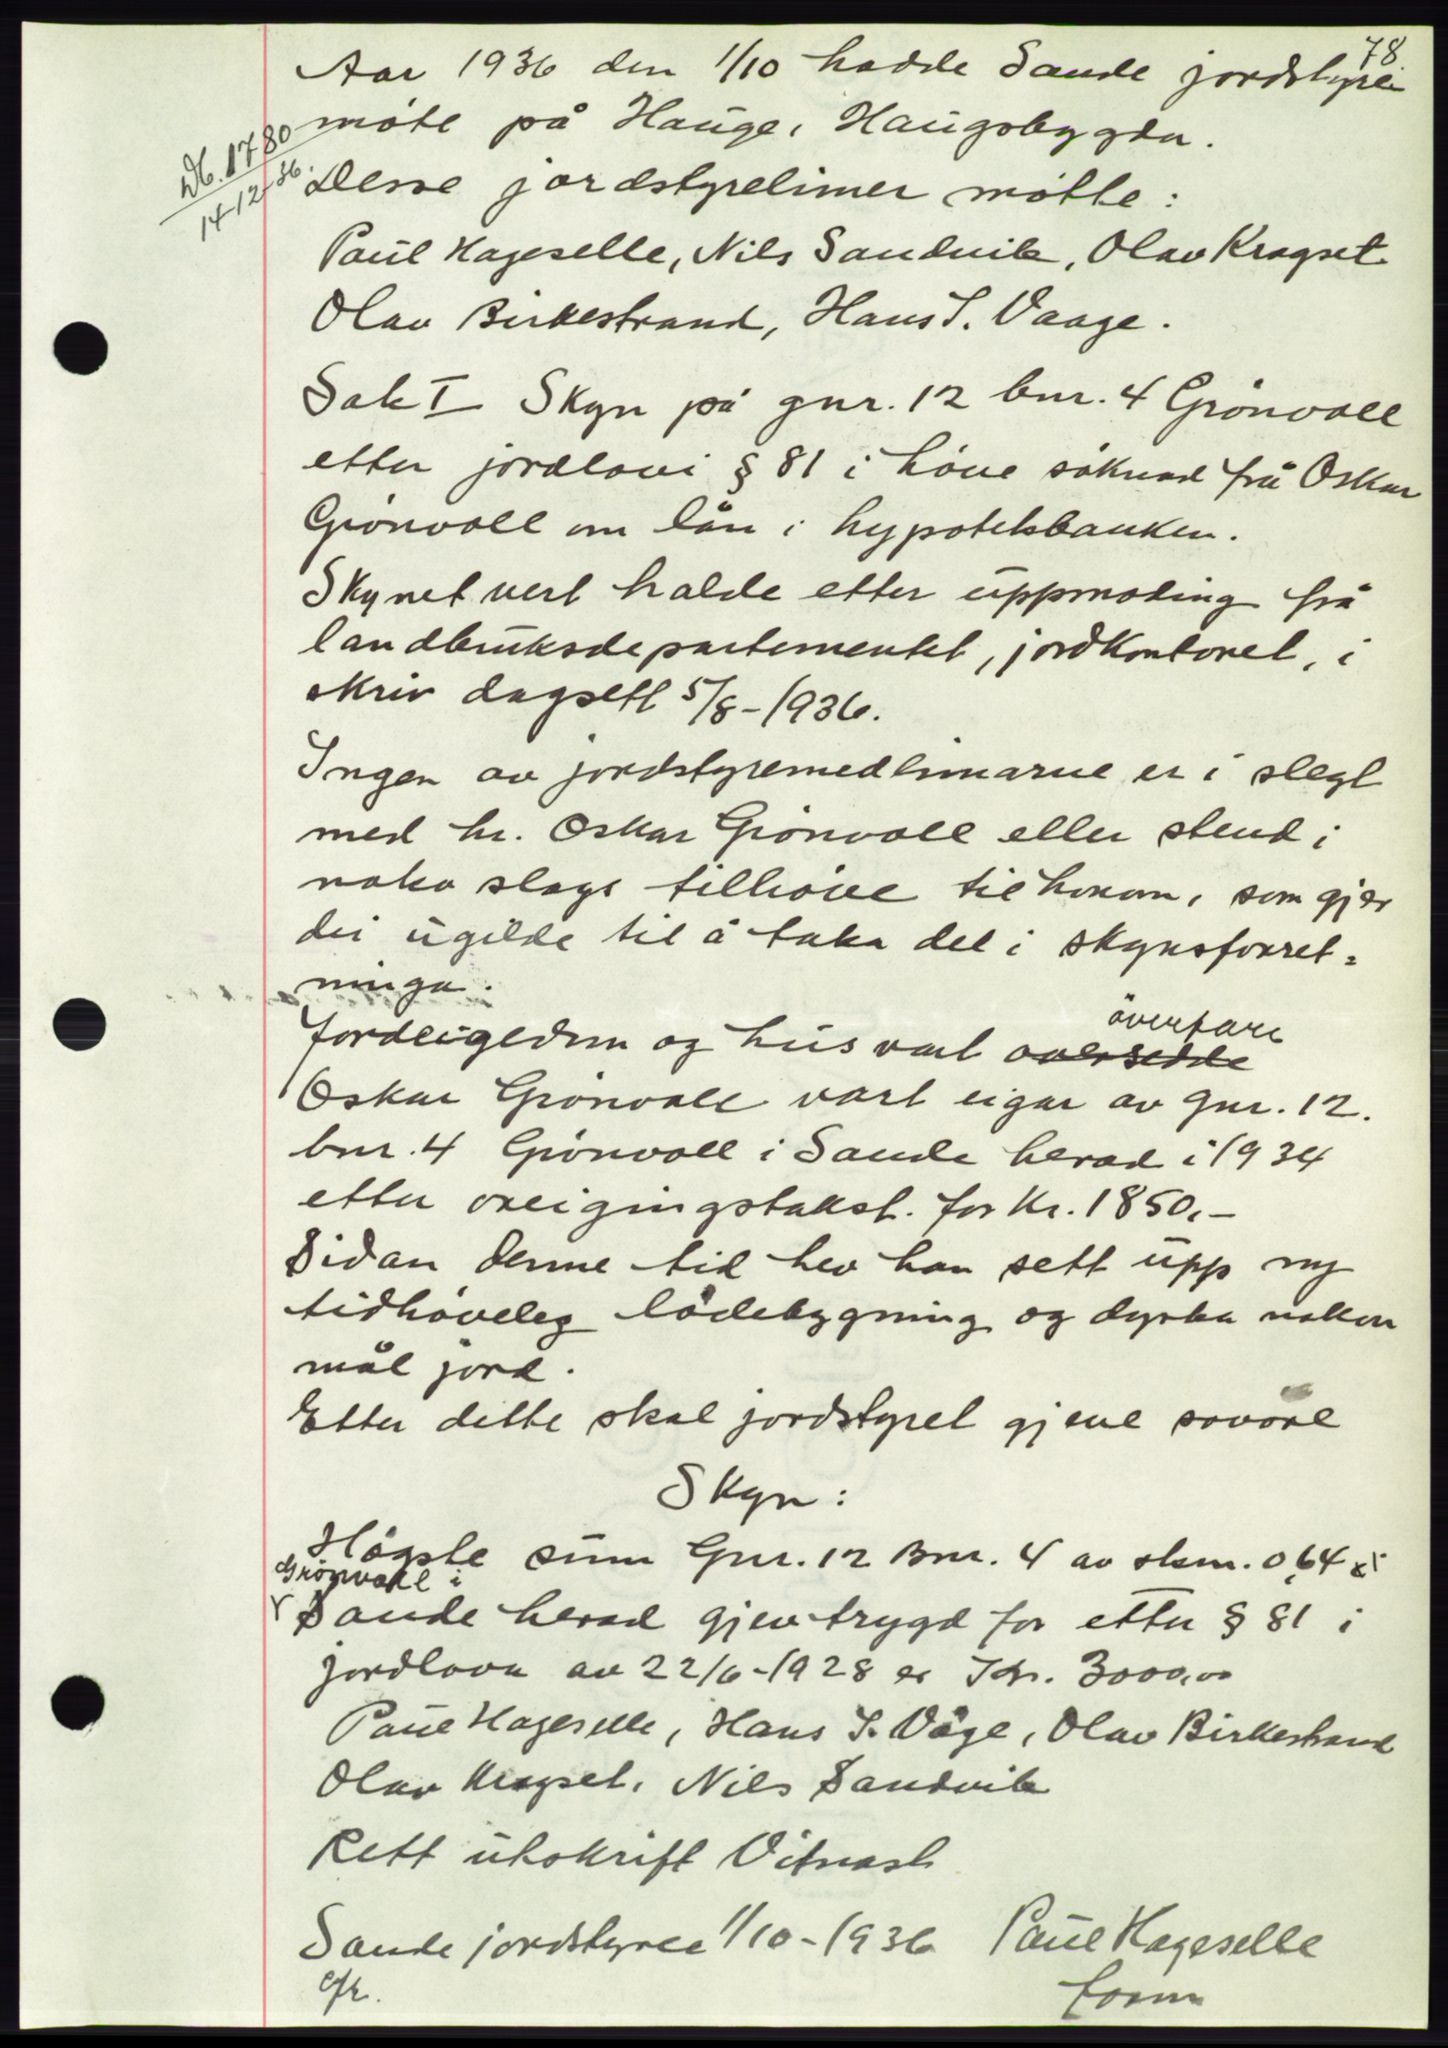 78.
Aar 1936 den 1/10 hadde Sande jordstyre
møte på Hauge, Haugsbygda.
Db. 1780
14-12-36.
Desse jordstyrelimer møtte:
Paul Hageselle, Nils Sandvik, Olav Kragset
Olav Birkestrand, Hans J. Vaage.
Sak I Skyn på gnr. 12 bnr. 4 Grönvoll
etter jordlovi § 81 i høve søknad frå Oskar
Grönvoll om lån i hypotekbanken.
Skynet vert halde etter uppmoding frå
landbruksdepartementet, jordkontoret, i
skriv dagsett 5/8-1936.
Ingen av jordstyremedlimarne er i slegt
med hr. Oskar Grönvoll eller stend i
noko slags tilhøve til honom, som gjer
dei ugilde til å taka del i skynsforret=
ninga.
Jordeigedom og hus vart oversedde överfare
Oskar Grönvoll vart eigar av gnr. 12.
bnr. 4 Grönvoll i Sande herad i 1934
etter oreigingstakst. for kr. 1850,-
Sidan denne tid hev han sett upp ny
tidhøveleg lödebygning og dyrka nokon
mål jord.
Etter dette skal jordstyret gjeve sovore
Skyn:
Högste sum Gnr. 12 Bnr. 4 av skm. 0,64
Grönvoll i
Sande herad gjev trygd for etter § 81 i
jordlova av 22/6-1928 er Kr. 3000,00
Paul Hageselle, Hans J. Våge, Olav Birkestrand
Olav Kragset, Nils Sandvik
Rett utskrift Vitnast
Sande jordstyre 1/10-1936 Paul Hageselle
form